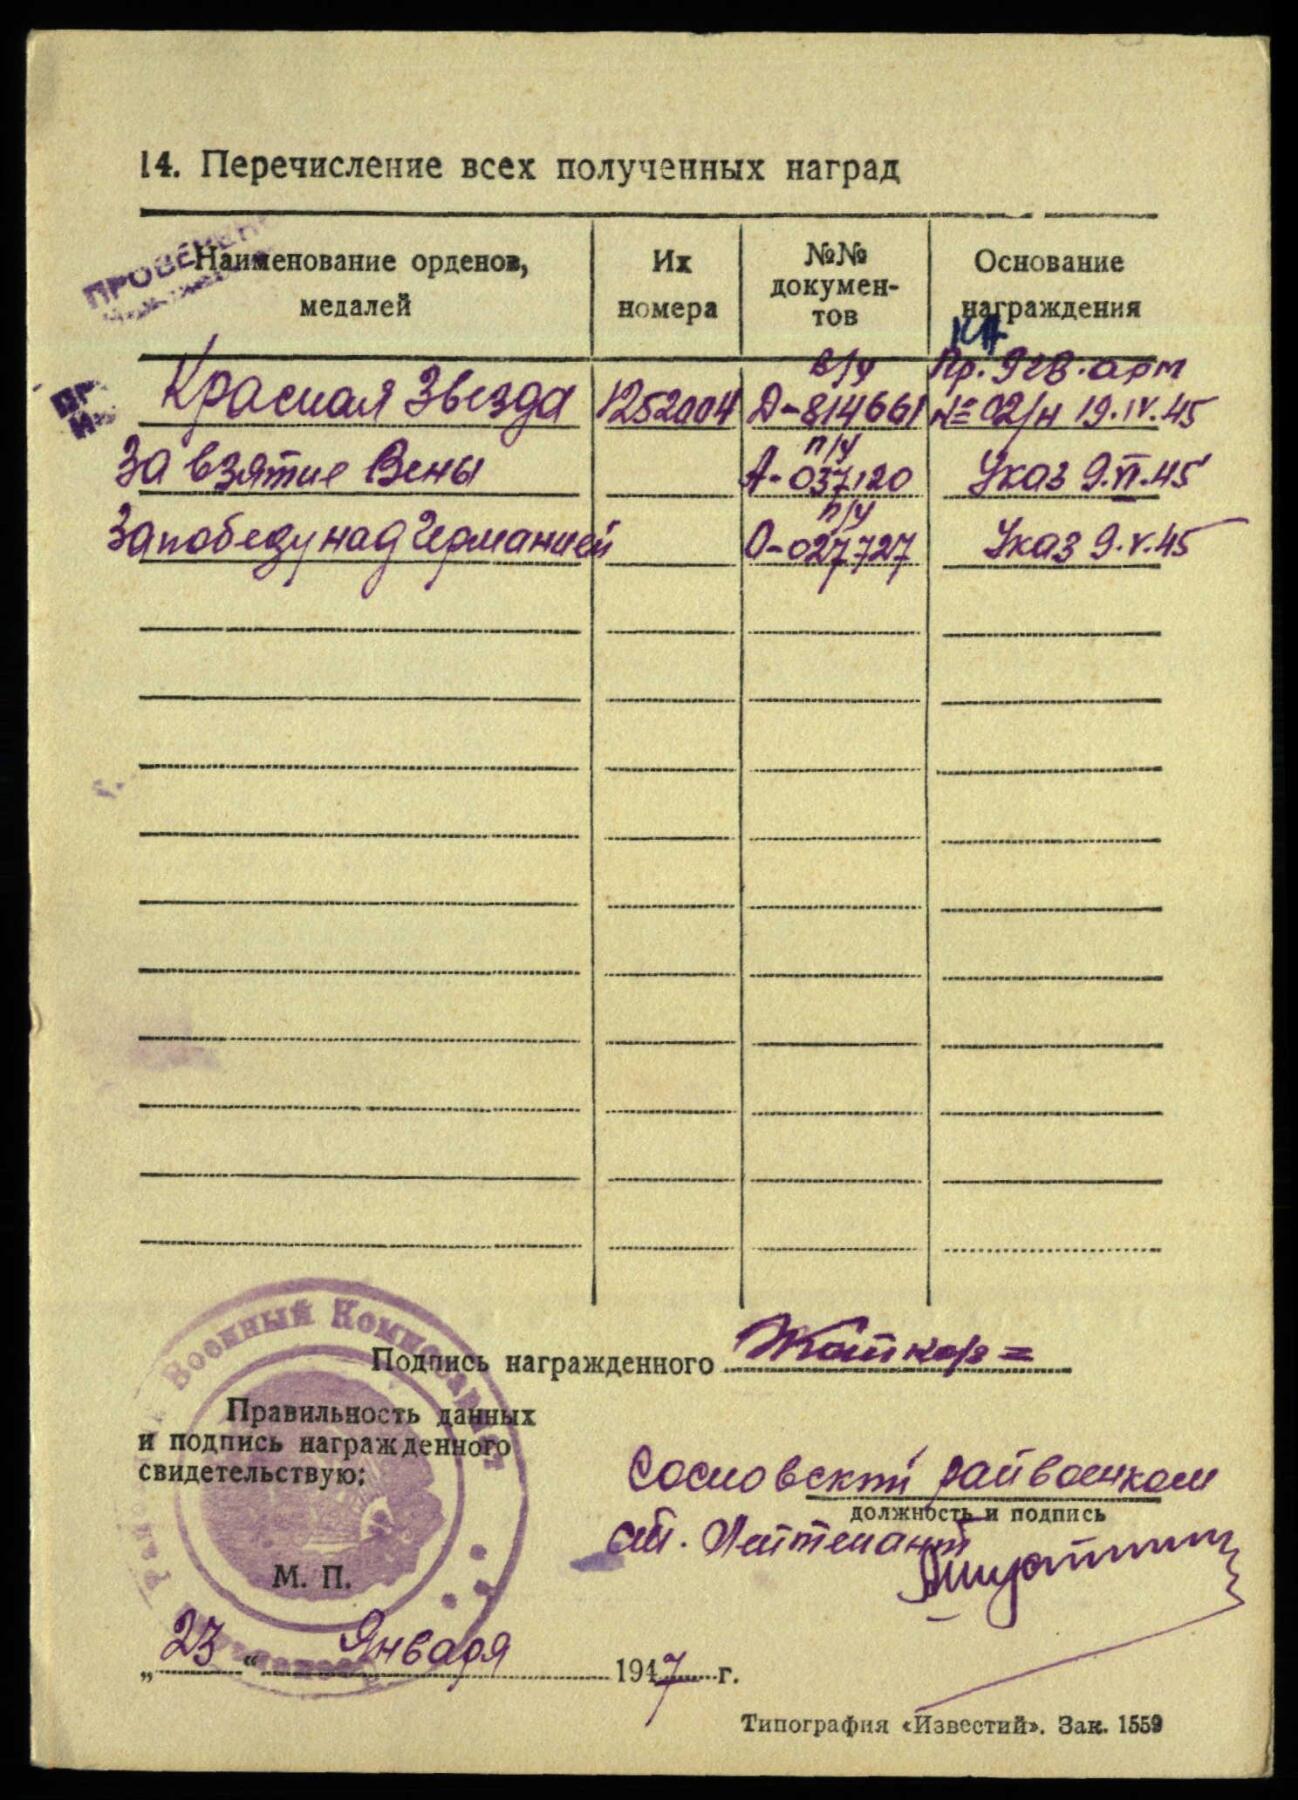 14. Перечисление всех полученных наград
ПРОВЕРЕН
Наименование орденов,
медалей
Их
номера
№№
докумен-
тов
Основание
награждения
в/у Пр. арт
Красная Звезда 1252004 Д-814661 № 02/н 19.IV.45
п/у
За взятие Вены А-037120 Указ 9.VI.45
п/у
За победу над Германией О-027727 Указ 9.V.45
Военный Комиссариат
Подпись награжденного
Правильность данных
и подпись награжденного
свидетельствую:
Сосновский райвоенком
должность и подпись
ст. Лейтенант
М. П.
„23“ Января 1947 г.
Типография «Известий». Зак. 1559